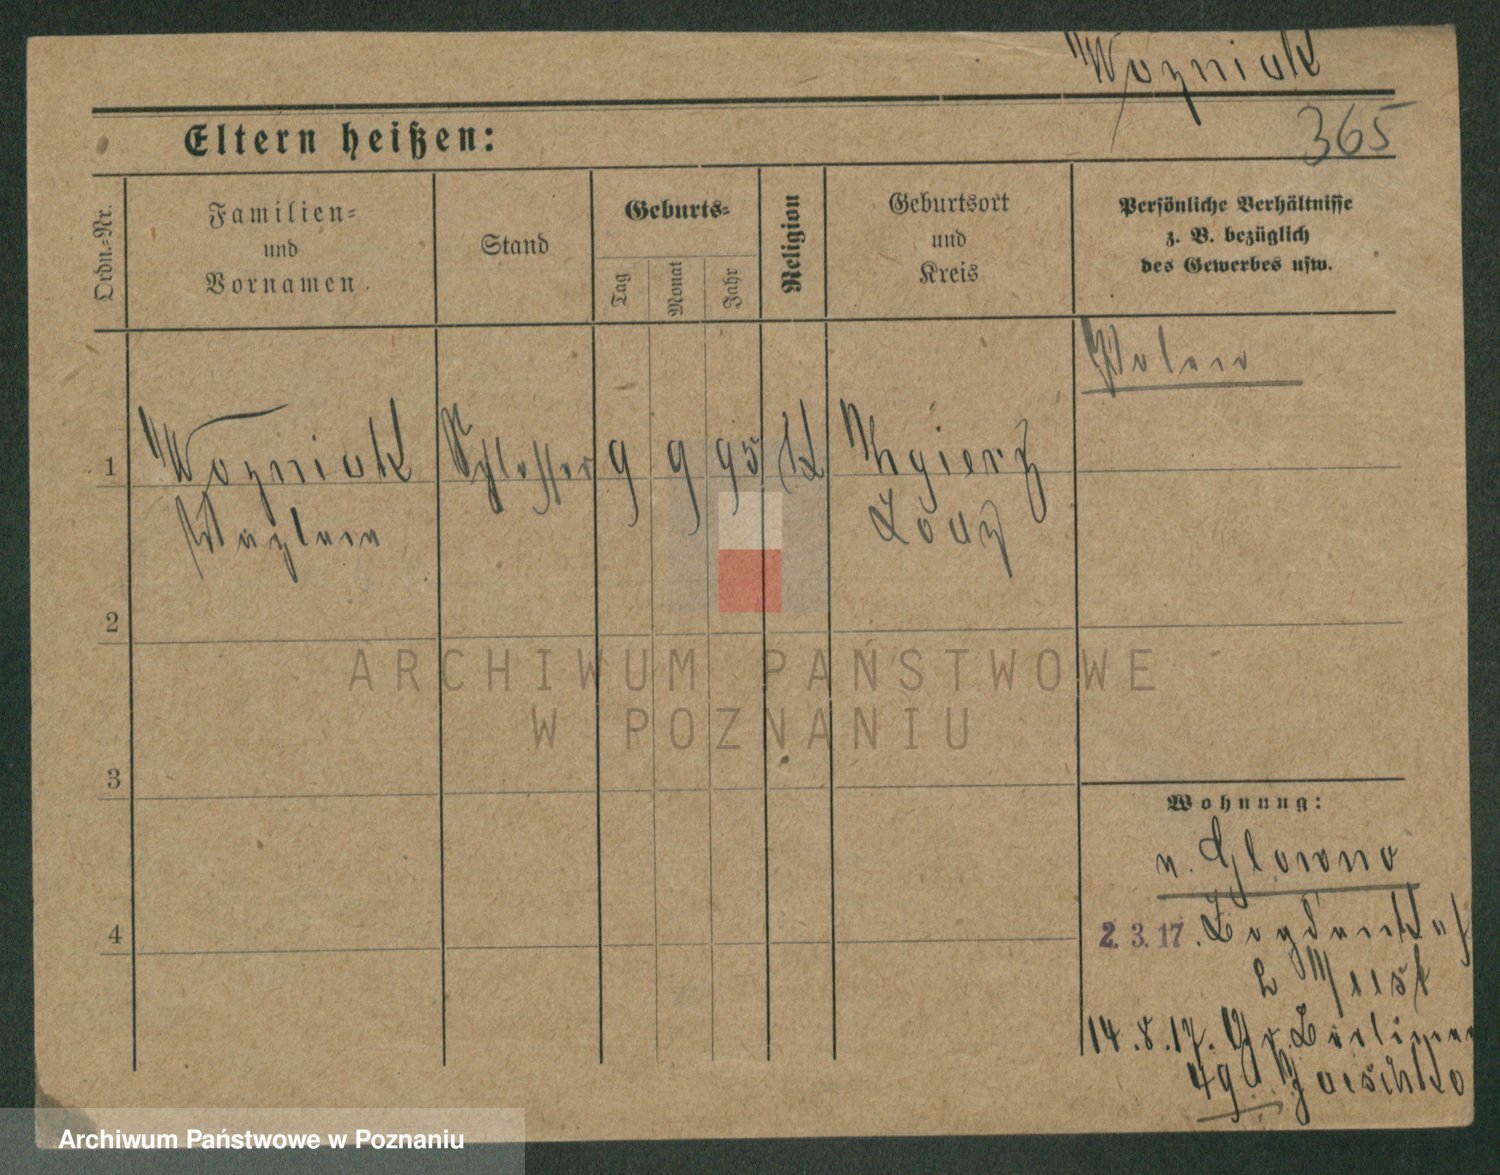 Wozniak
365
Eltern heißen:
Ordn.-Nr.
Familien-
und
Vornamen.
Stand
Geburts-
Tag
Monat
Jahr
Religion
Geburtsort
und
Kreis
Persönliche Verhältnisse
z. B. bezüglich
des Gewerbes usw.
Polen
1 Wozniak Schlosser 9 9 95 K Zgierz
Lodz
2
3
Wohnung:
n. Glowno
4
2.3.17.
14.8.17. Gr. Berliner
49
ARCHIWUM PAŃSTWOWE
W POZNANIU
Archiwum Państwowe w Poznaniu